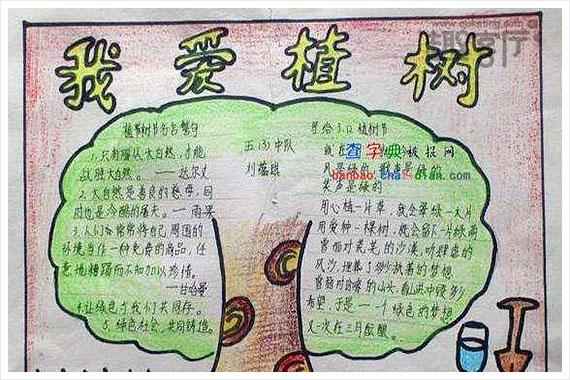 我爱植树
植树节名言警句
1.只有服从大自然,才能
战胜大自然。——达尔文
2.大自然是善良的慈母,同
时也是冷酷的屠夫。——雨果
3.人们常常将自己周围的
环境当作一种免费的商品,任
意地糟蹋而不知加以珍惜。
——甘哈曼
4.让绿色与我们共同存。
5.绿色社会,共同铸造。
五(3)中队
写给3.12植树节
查字典 板报网
banbao.chazidian.com
笑声是绿的
用心植一片草,就会翠绿一大片
用爱种一棵树,就会
官面对荒芜的沙漠,听肆虐的
风沙,埋葬了多少执着的梦想
希望,于是一个绿色的梦想
又一次在三月酝酿。